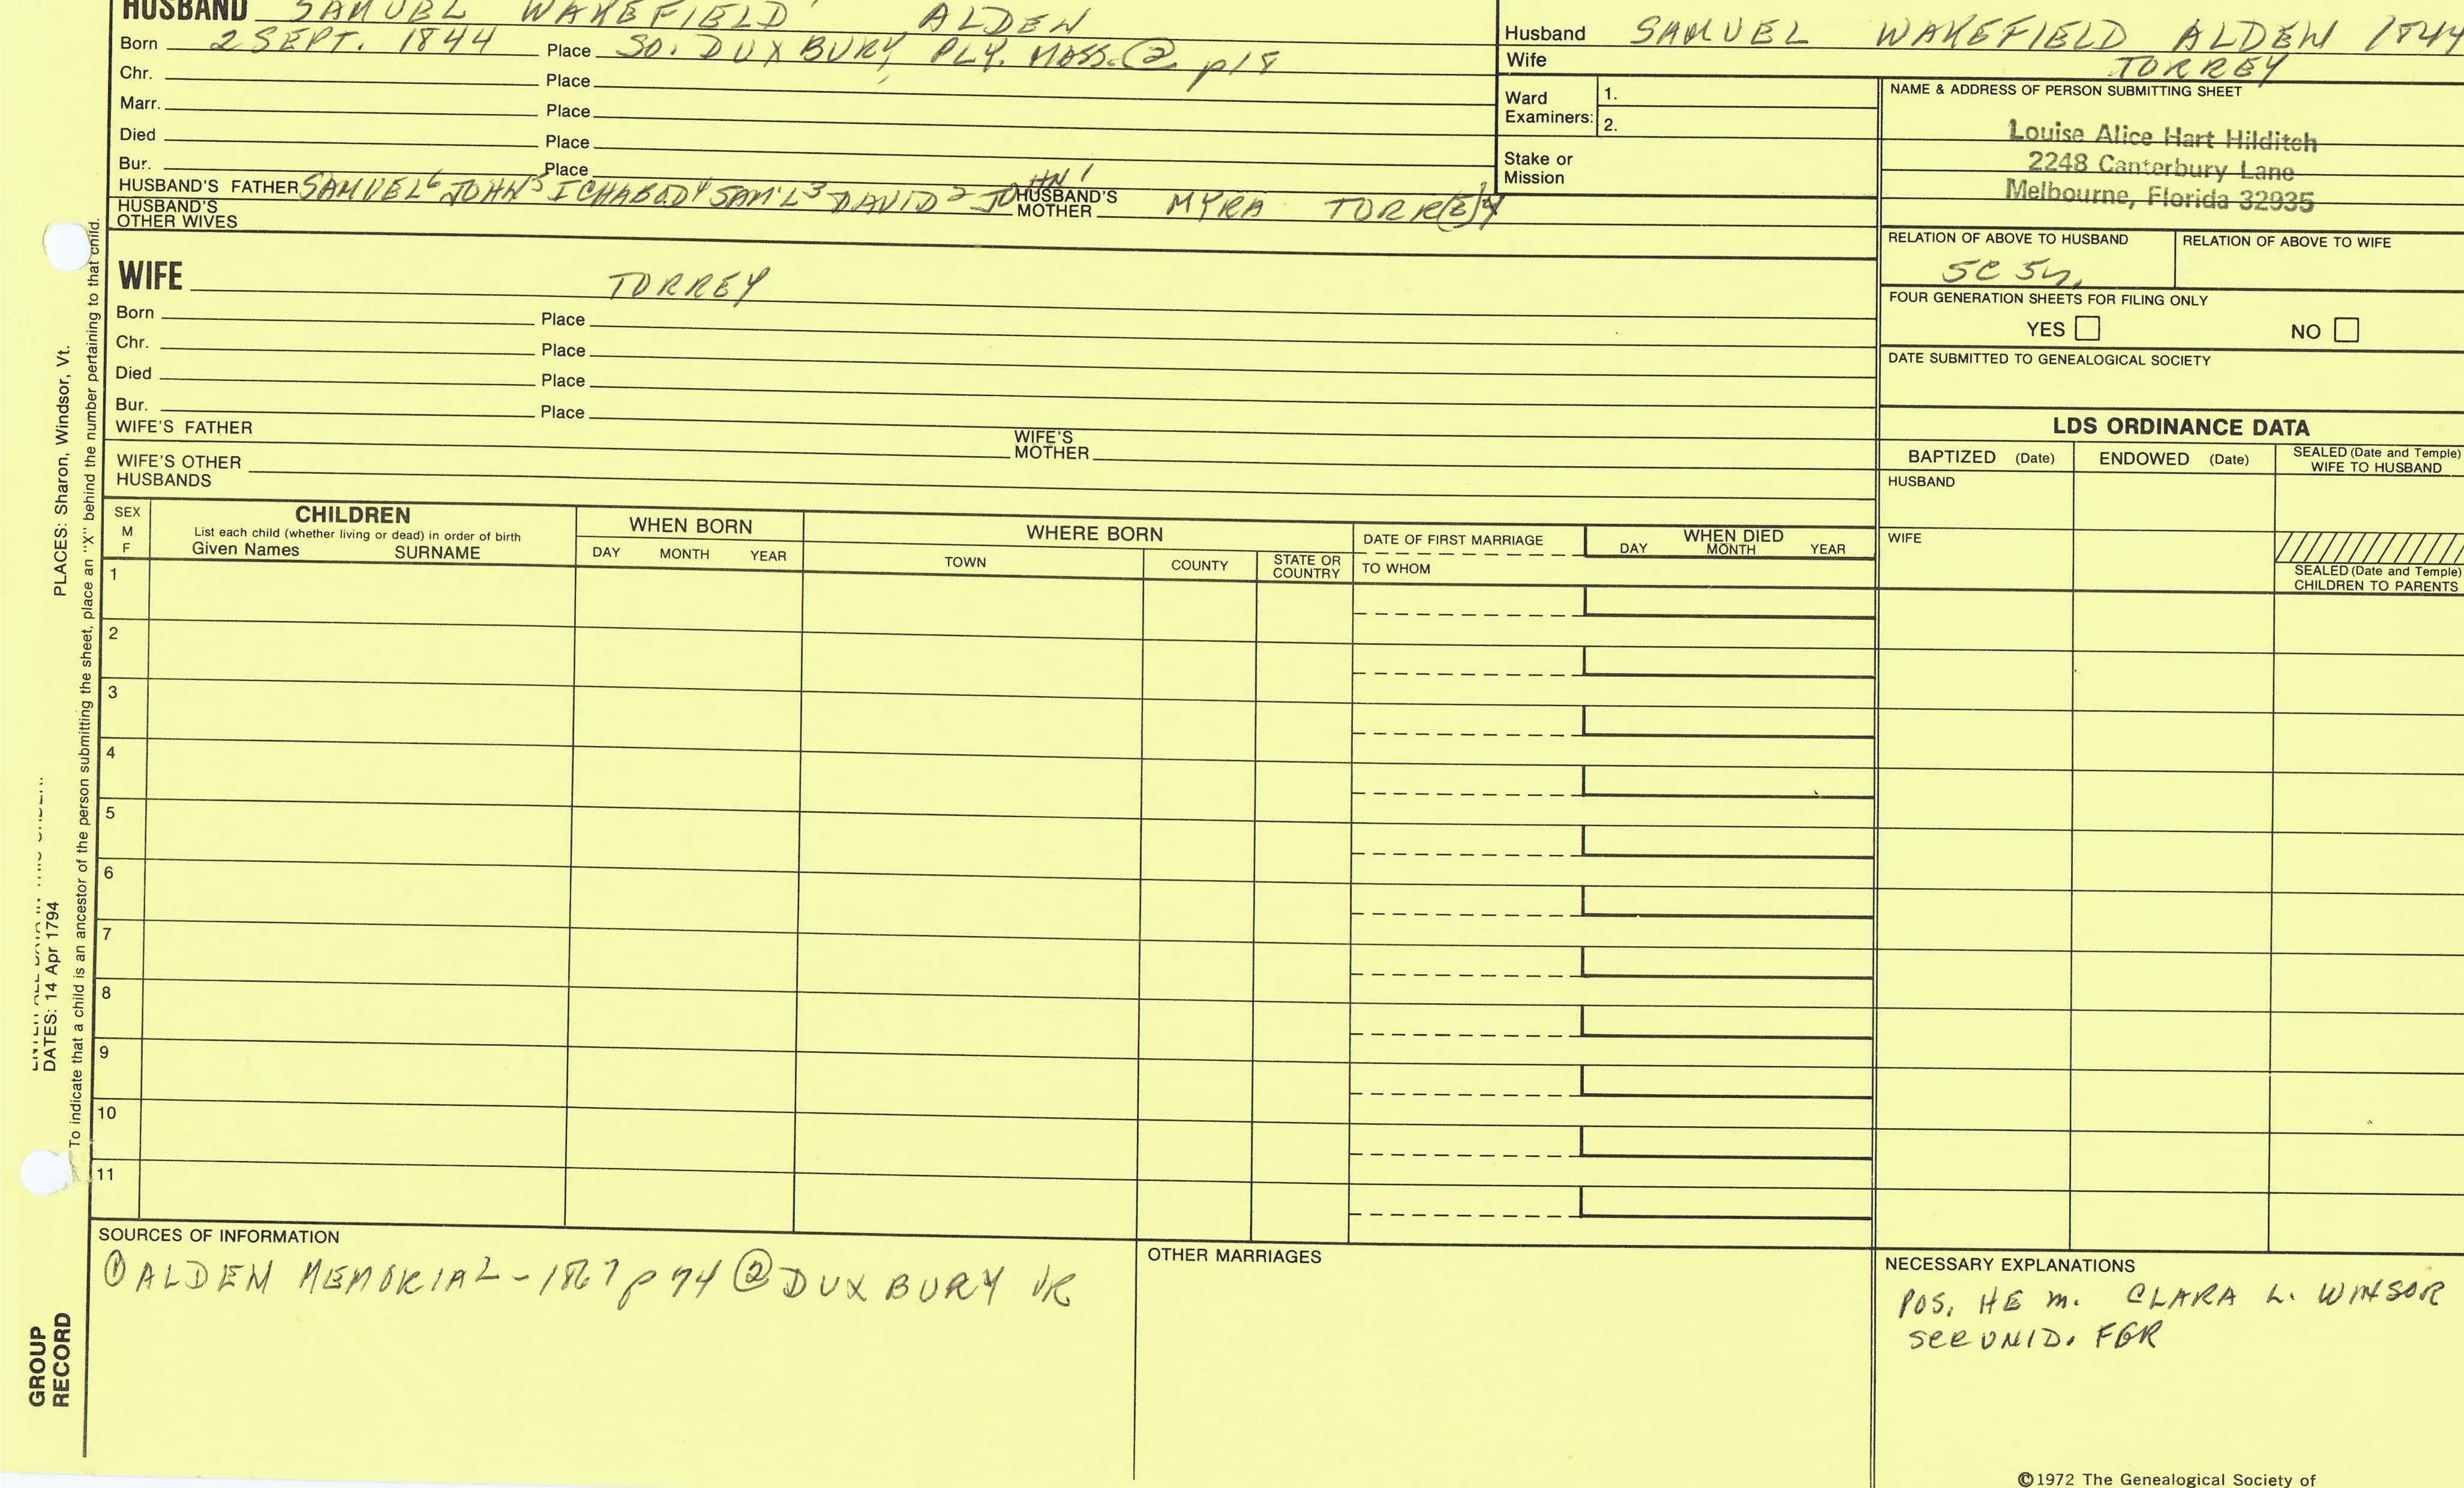 HUSBAND SAMUEL WAKEFIELD ALDEN
Born 2 SEPT. 1844 Place SO. DUXBURY, PLY. MASS. ② p18
Chr. Place
Marr. Place
Died Place
Bur. Place
HUSBAND'S FATHER SAMUEL6 JOHN5 ICHABOD4 SAM'L3 DAVID2 JOHN1 HUSBAND'S MOTHER MYRA TORR(E)Y
HUSBAND'S OTHER WIVES
WIFE TORREY
Born Place
Chr. Place
Died Place
Bur. Place
WIFE'S FATHER WIFE'S MOTHER
WIFE'S OTHER HUSBANDS
Husband SAMUEL WAKEFIELD ALDEN 1844
Wife TORREY
Ward Examiners: 1.
2.
Stake or Mission
NAME & ADDRESS OF PERSON SUBMITTING SHEET
Louise Alice Hart Hilditch
2248 Canterbury Lane
Melbourne, Florida 32935
RELATION OF ABOVE TO HUSBAND RELATION OF ABOVE TO WIFE
5C 5
FOUR GENERATION SHEETS FOR FILING ONLY
YES NO
DATE SUBMITTED TO GENEALOGICAL SOCIETY
LDS ORDINANCE DATA
BAPTIZED (Date) ENDOWED (Date) SEALED (Date and Temple) WIFE TO HUSBAND
HUSBAND
WIFE
SEALED (Date and Temple)
CHILDREN TO PARENTS
SEX
M
F
CHILDREN
List each child (whether living or dead) in order of birth
Given Names SURNAME
WHEN BORN
DAY MONTH YEAR
WHERE BORN
TOWN COUNTY STATE OR COUNTRY
DATE OF FIRST MARRIAGE
TO WHOM
WHEN DIED
DAY MONTH YEAR
1
2
3
4
5
6
7
8
9
10
11
SOURCES OF INFORMATION
① ALDEN MEMORIAL - 1867 p 74 ② DUXBURY VR
OTHER MARRIAGES
NECESSARY EXPLANATIONS
POS. HE m. CLARA L. WINSOR
SEE UNID. FGR
©1972 The Genealogical Society of
PLACES: Sharon, Windsor, Vt.
DATES: 14 Apr 1794
To indicate that a child is an ancestor of the person submitting the sheet, place an "X" behind the number pertaining to that child.
GROUP
RECORD